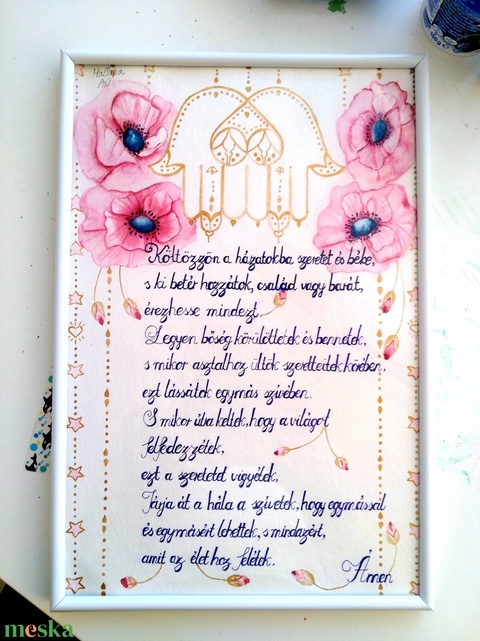 Költözzön a házatokba szeretet és béke,
s ki betér hozzátok, család vagy barát,
érezhesse mindezt.
Legyen bőség körülöttetek és bennetek,
s mikor asztalhoz ültök szeretteitek körében,
ezt lássátok egymás szívében.
S mikor útra keltek, hogy a világot
felfedezzétek,
ezt a szeretetet vigyétek,
Járja át a hála a szívetek, hogy egymással
és egymásért lehettek, s mindazért,
amit az élet hoz felétek.
Ámen
meska